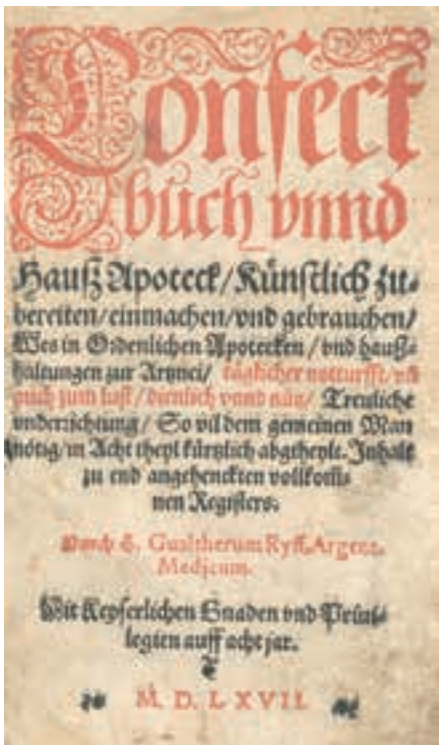 Confect
bůch vnnd
Hauß Apoteck / Künstlich zů-
bereiten / einmachen / vnd gebrauchen /
Wes in Ordenlichen Apotecken / vnd hauß-
haltungen zur Artznei / täglicher notturfft / vñ
auch zum lust / dienlich vnnd nütz / Trewliche
vnderrichtung / So vil dem gemeinen Man
nötig / in Acht theyl kürtzlich abgtheylt. Inhalt
zu end angehenckten vollkom̃-
nen Registers.
Durch G. Gualtherum Ryff. Argent.
Medicum.
Mit Keyserlichen Gnaden vnd Priui-
legien auff acht jar.
M. D. LXVII.